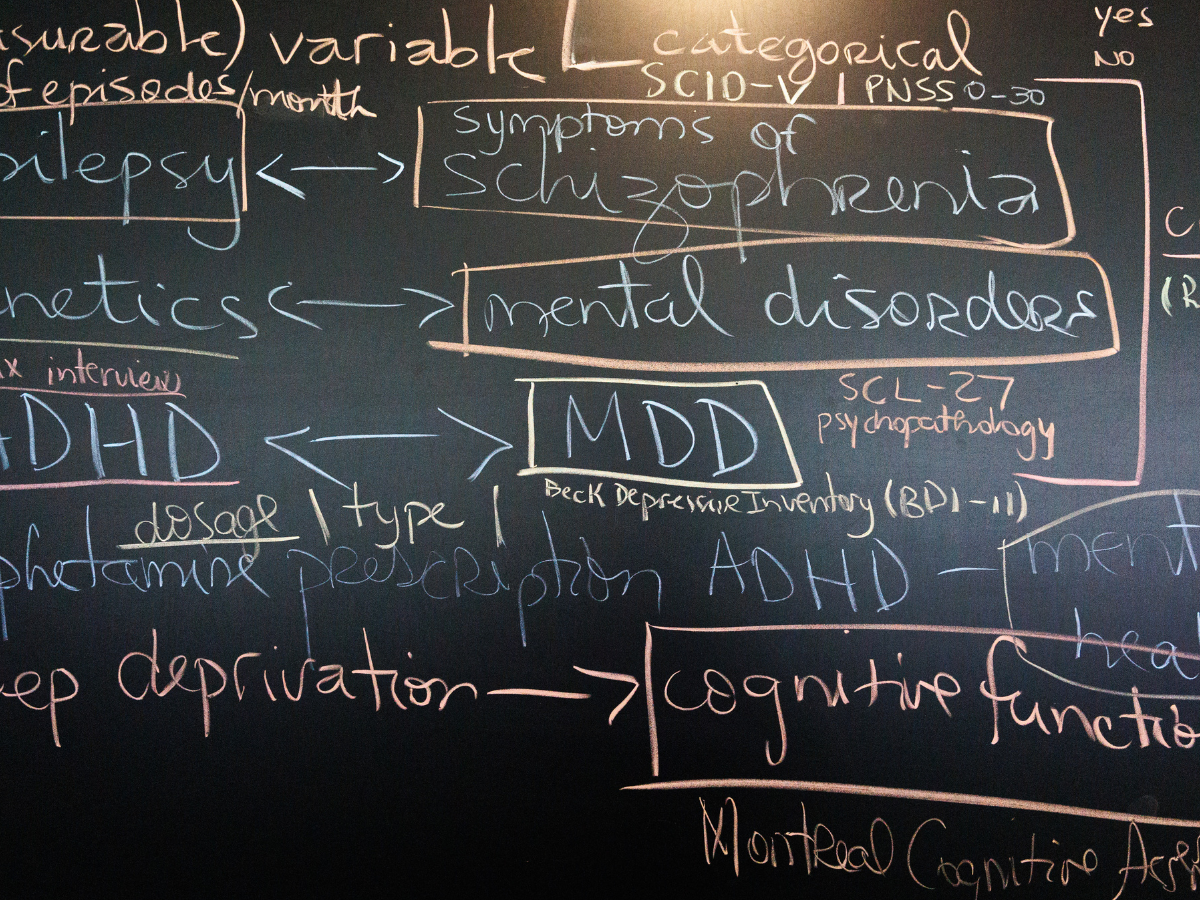 surable) variable categorical yes
NO
of episodes/month SCID-V | PNSS 0-30
pilepsy <—> symptoms of
schizophrenia
netics <—> mental disorders
x interview SCL-27
psychopathology
ADHD <—> MDD
dosage | type | Beck Depressive Inventory (BDI-II)
phetamine prescription ADHD — ment
hea
eep deprivation —> cognitive functio
Montreal Cognitive Asses